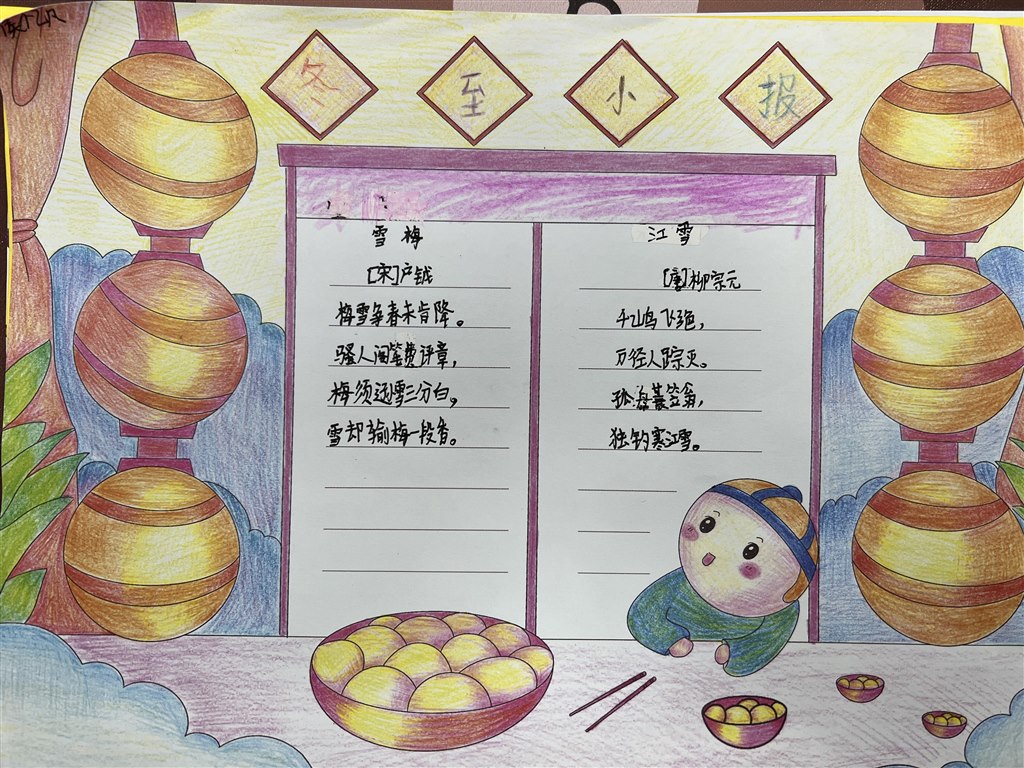 冬至小报
雪梅
[宋]卢钺
梅雪争春未肯降。
骚人阁笔费评章,
梅须逊雪三分白,
雪却输梅一段香。
江雪
[唐]柳宗元
千山鸟飞绝,
万径人踪灭。
独钓寒江雪。